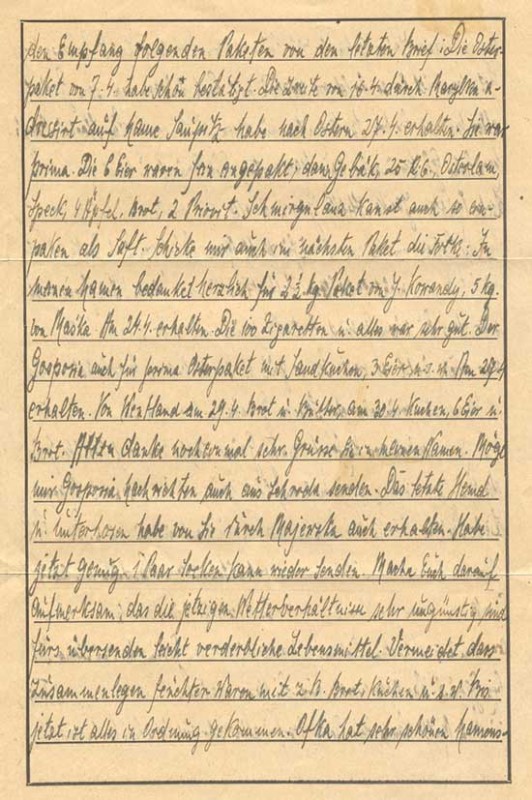 den Empfang folgenden Paketen von den letzten Brief: Die Oster-
paket von 7.4. habe schon bestätigt. Die zweite von 18.4. durch a-
dressirt auf Name habe nach Ostern 27.4. erhalten. Sie war
prima. Die 6 Eier waren angepakt, dann Gebäk, 25 Osterlam,
Speck, 4 Äpfel, Brot, 2 kanst auch so ein-
paken als Saft. Schicke mir auch im nächsten Paket die In
meinen Namen bedanket herzlich für 2½ kg. Paket von J. 5 kg.
von Maśka Am 24.4. erhalten. Die 100 Zigaretten u. alles war sehr gut. Der
Gosposia auch für prima Osterpaket mit Sandkuchen, 3 Eier u.s.w. Am 29.4
erhalten. Von Wentland am 29.4. Brot u. Butter, am 30.4 Kuchen, 6 Eier u.
Brot. Allen danke nocheinmal sehr. Grüsse Sie in meinen Namen. Möge
mir Gosposia Nachrichten auch aus Schroda senden. Das letzte Hemd
u. Unterhosen habe von Sie durch auch erhalten. Habe
jetzt genug. 1 Paar Socken kann wieder senden. Mache Euch darauf
aufmerksam, das die jetzigen Wetterverhältnisse sehr ungünstig sind
fürs übersenden leicht verderbliche Lebensmittel. Vermeidet das
zusammenlegen feuchter Waren mit z.B. Brot, Kuchen u.s.w. Bis
jetzt ist alles in Ordnung gekommen. Ofka hat sehr schönen Namens-